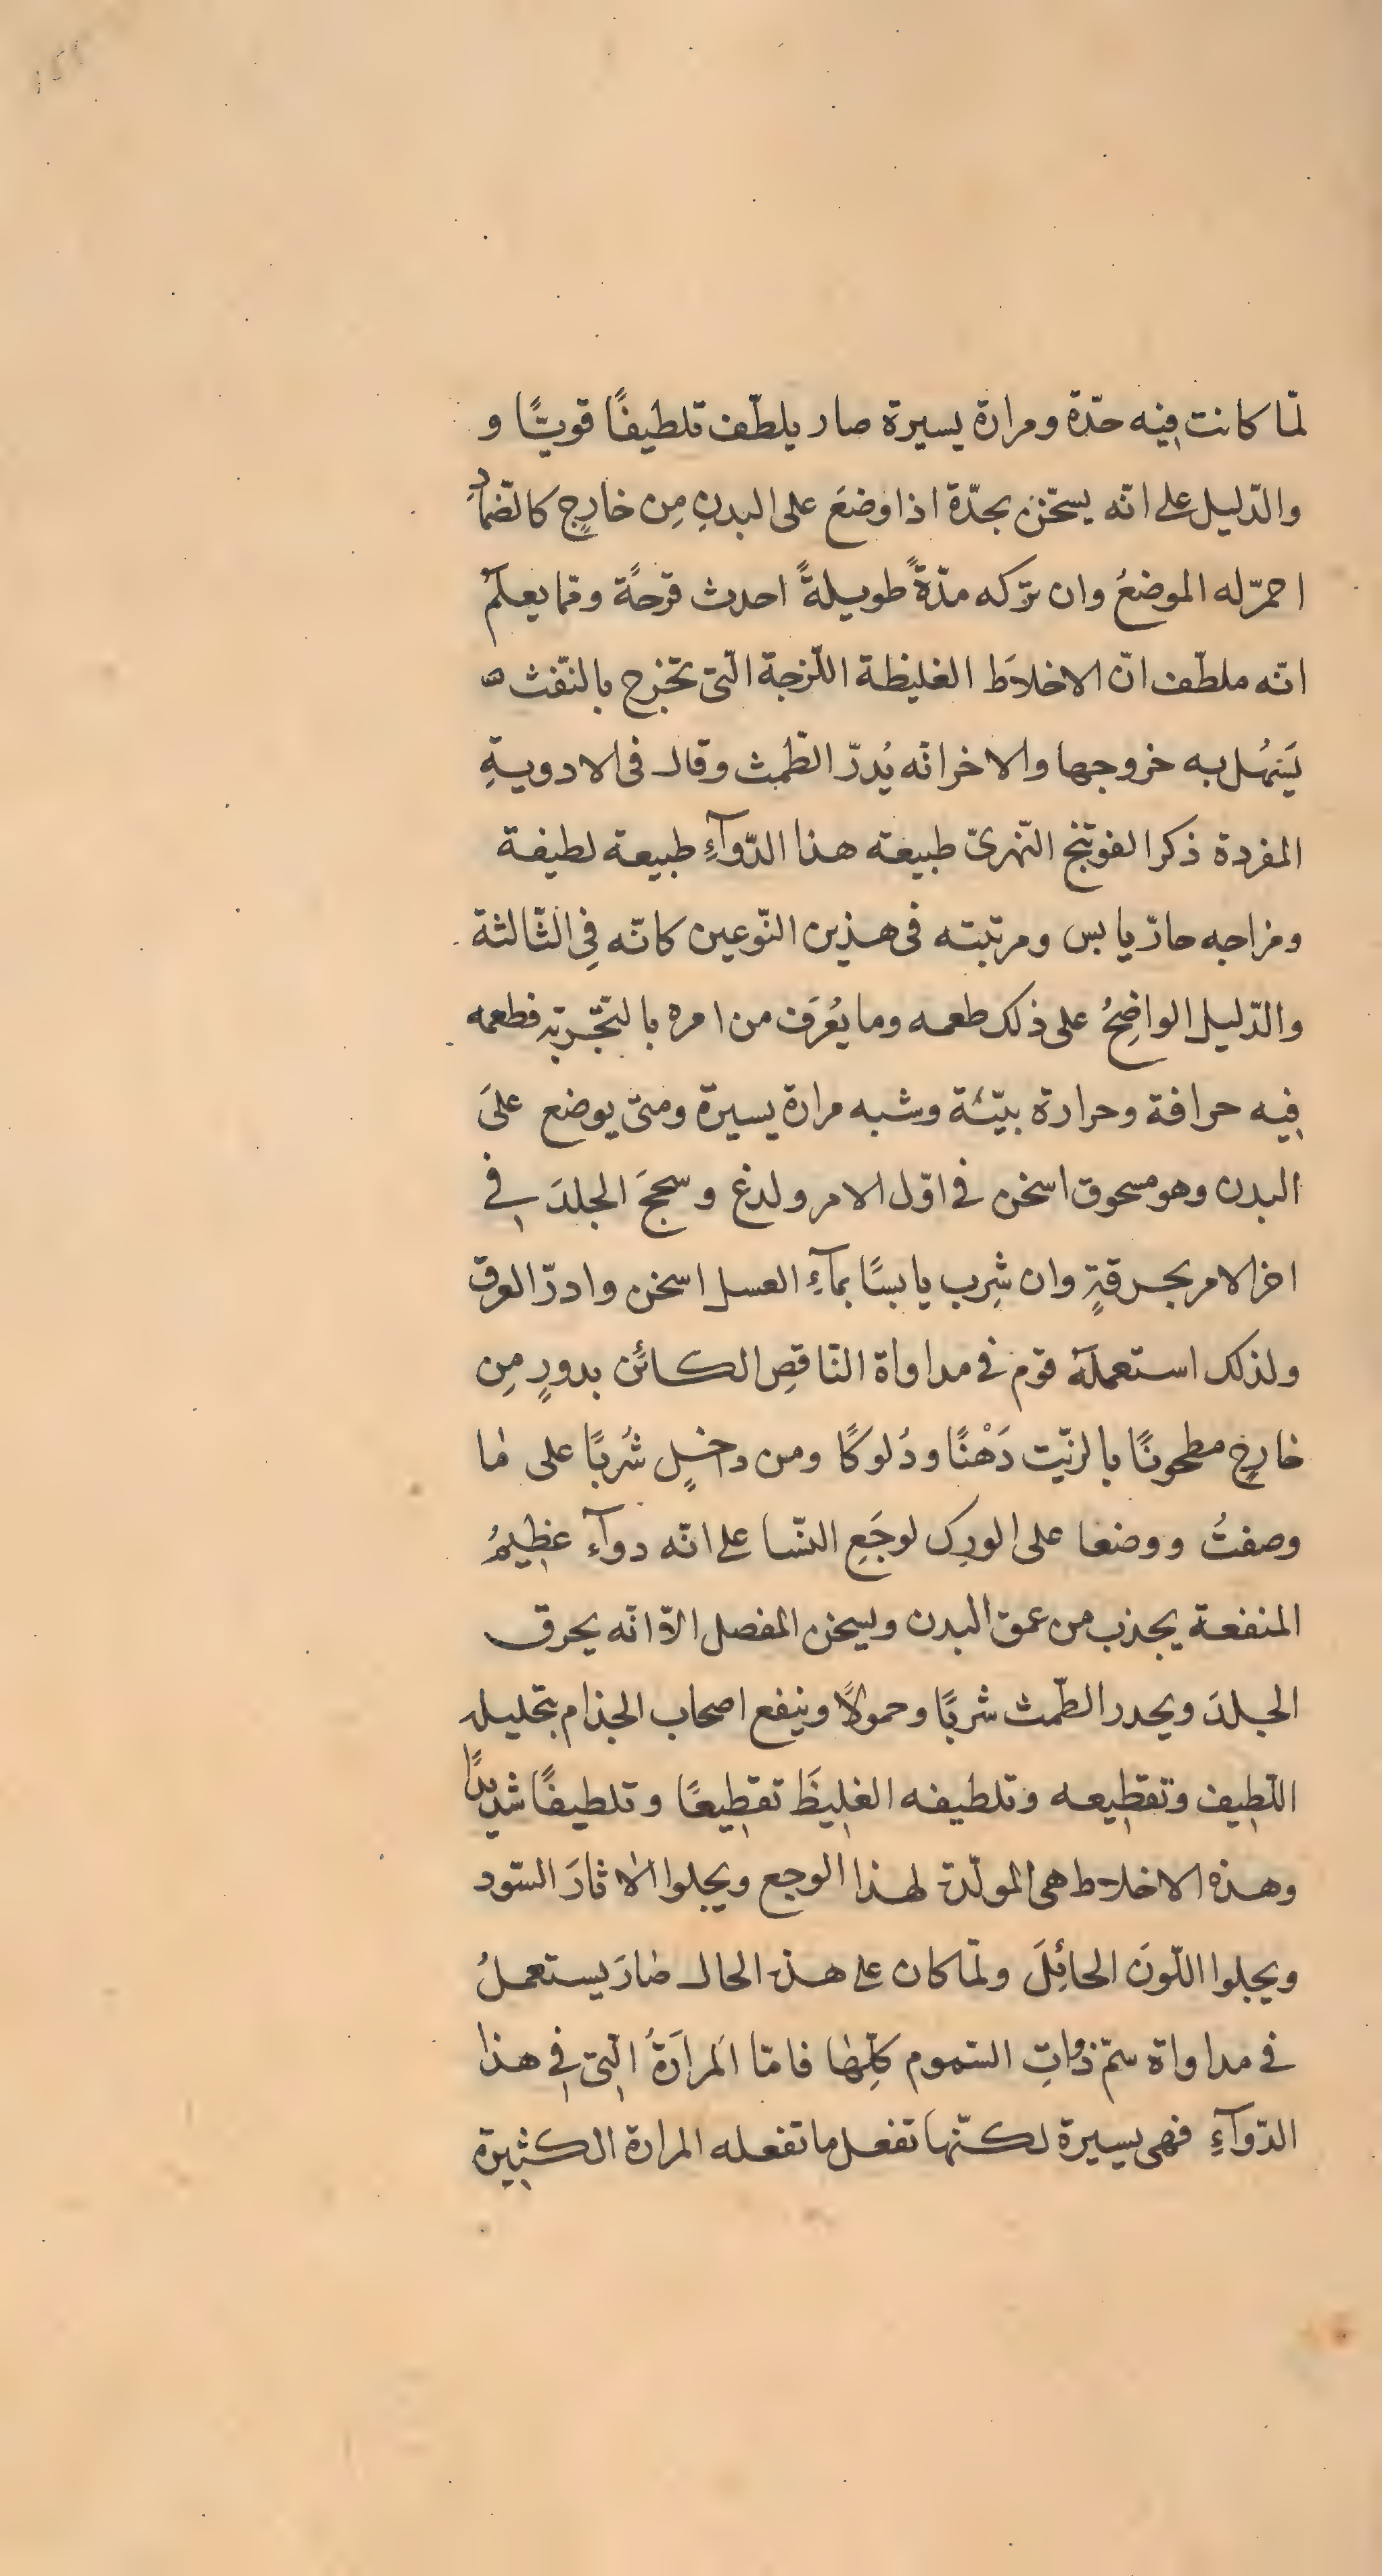 لمّا كانت فيه حدّة ومرارة يسيرة صار يلطّف تلطيفًا قويًّا و
والدّليل على انّه يسخّن بحدّة اذا وضعَ على البدنِ مِن خارجٍ كالضّمادِ
احمرّ له الموضعُ وان تركه مدّةً طويلةً احدث قرحةً وممّا يعلم
انّه ملطّف انّ الاخلاَط الغليظة اللّزجة الّتى تخرج بالنّفث
يَسْهُل به خروجها والاخر انّه يُدرّ الطّمث وقال فى الادويةِ
المفردة ذكر الفوتنج النّهرىّ طبيعة هذا الدّوآءِ طبيعة لطيفة
ومزاجه حارّ يابس ومرتبته فى هذين النّوعين كانّه فِى الثّالثة
والدّليل الواضِحُ على ذلك طعمه وما يُعرَف من امره بالتّجربة فطعمه
فيه حرافة وحرارة بيّنة وشبه مرارة يسيرة ومتى يوضع علىَ
البدن وهو مسحوق اسخن فى اوّل الامر ولدغ وسحجَ الجلدَ فى
اخر الامر بحرقةٍ وان شِرب يابسًا بمآءِ العسل اسخن وادرّ العرق
ولذلك استعمله قوم فى مداواة النّاقصِ الكائن بدورٍ مِن
خارجٍ مطحونًا بالزيّت دَهْنًا ودُلوكًا ومن داخلٍ شُربًا على ما
وصفتُ ووضعا على الورِك لوجَعِ النّسا على انّه دوآء عظيمُ
المنفعة يجذب من عمق البدن ويسخن المفصل الاّ انّه يحرق
الجلدَ ويحدر الطّمث شربًا وحمولاً وينفع اصحاب الجذام بتحليله
اللّطيف وتقطيعه وتلطيفه الغليظَ تقطيعًا وتلطيفًا شديدًا
وهذه الاخلاط هى المولّدة لهذا الوجع ويجلوا الاثارَ السّود
ويجلوا اللّونَ الحائِلَ ولمّا كان على هذه الحال صارَ يستعملُ
فى مداواة سمّ ذواتِ السّموم كلِّها فامّا المرارَةُ الّتى فى هذا
الدّوآءِ فهى يسيرة لكنّها تفعل ما تفعله المرارة الكثيرة